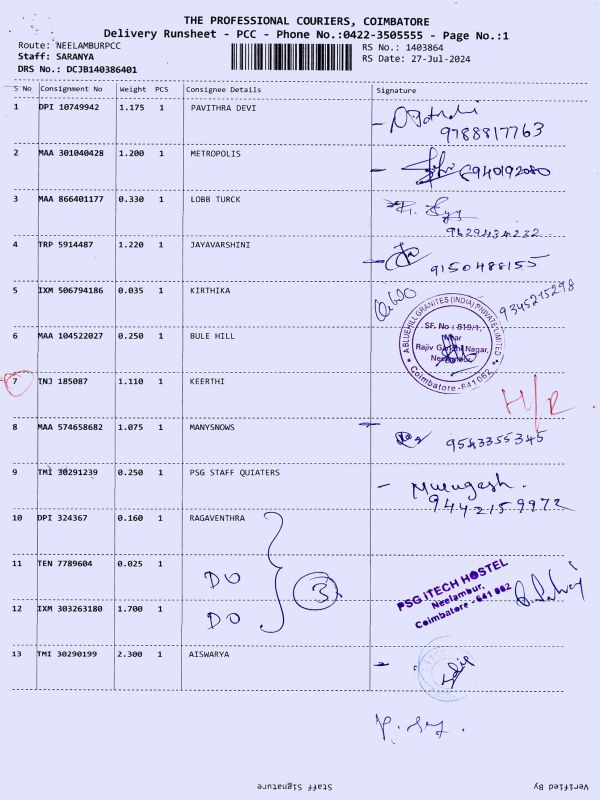 THE PROFESSIONAL COURIERS, COIMBATORE
Delivery Runsheet - PCC - Phone No.:0422-3505555 - Page No.:1
Route: NEELAMBURPCC RS No.: 1403864
Staff: SARANYA RS Date: 27-Jul-2024
DRS No.: DCJB140386401
S No Consignment No Weight PCS Consignee Details Signature
1 DPI 10749942 1.175 1 PAVITHRA DEVI
9788817763
2 MAA 301040428 1.200 1 METROPOLIS
6940192080
3 MAA 866401177 0.330 1 LOBB TURCK
9629434232
4 TRP 5914487 1.220 1 JAYAVARSHINI
9150488155
5 IXM 506794186 0.035 1 KIRTHIKA 9345215298
ABLUEHILL GRANITES (INDIA) PRIVATE LIMITED
SF. No : 819/1,
6 MAA 104522027 0.250 1 BULE HILL
Near
Rajiv Gandhi Nagar,
Neelambur,
Coimbatore - 641 062
7 TNJ 185087 1.110 1 KEERTHI
H/R
8 MAA 574658682 1.075 1 MANYSNOWS
9543355345
9 TMI 30291239 0.250 1 PSG STAFF QUIATERS
Murugesh.
9442159972
10 DPI 324367 0.160 1 RAGAVENTHRA
11 TEN 7789604 0.025 1
DO
3
PSG ITECH HOSTEL
Neelambur,
Coimbatore - 641 062
12 IXM 303263180 1.700 1
DO
13 TMI 30290199 2.300 1 AISWARYA
Staff Signature Verified By